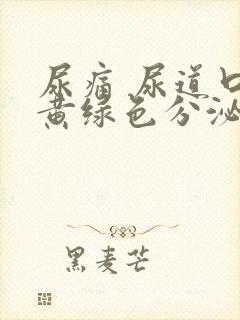 尿痛 尿道口
黄绿色分泌
黑麦芒